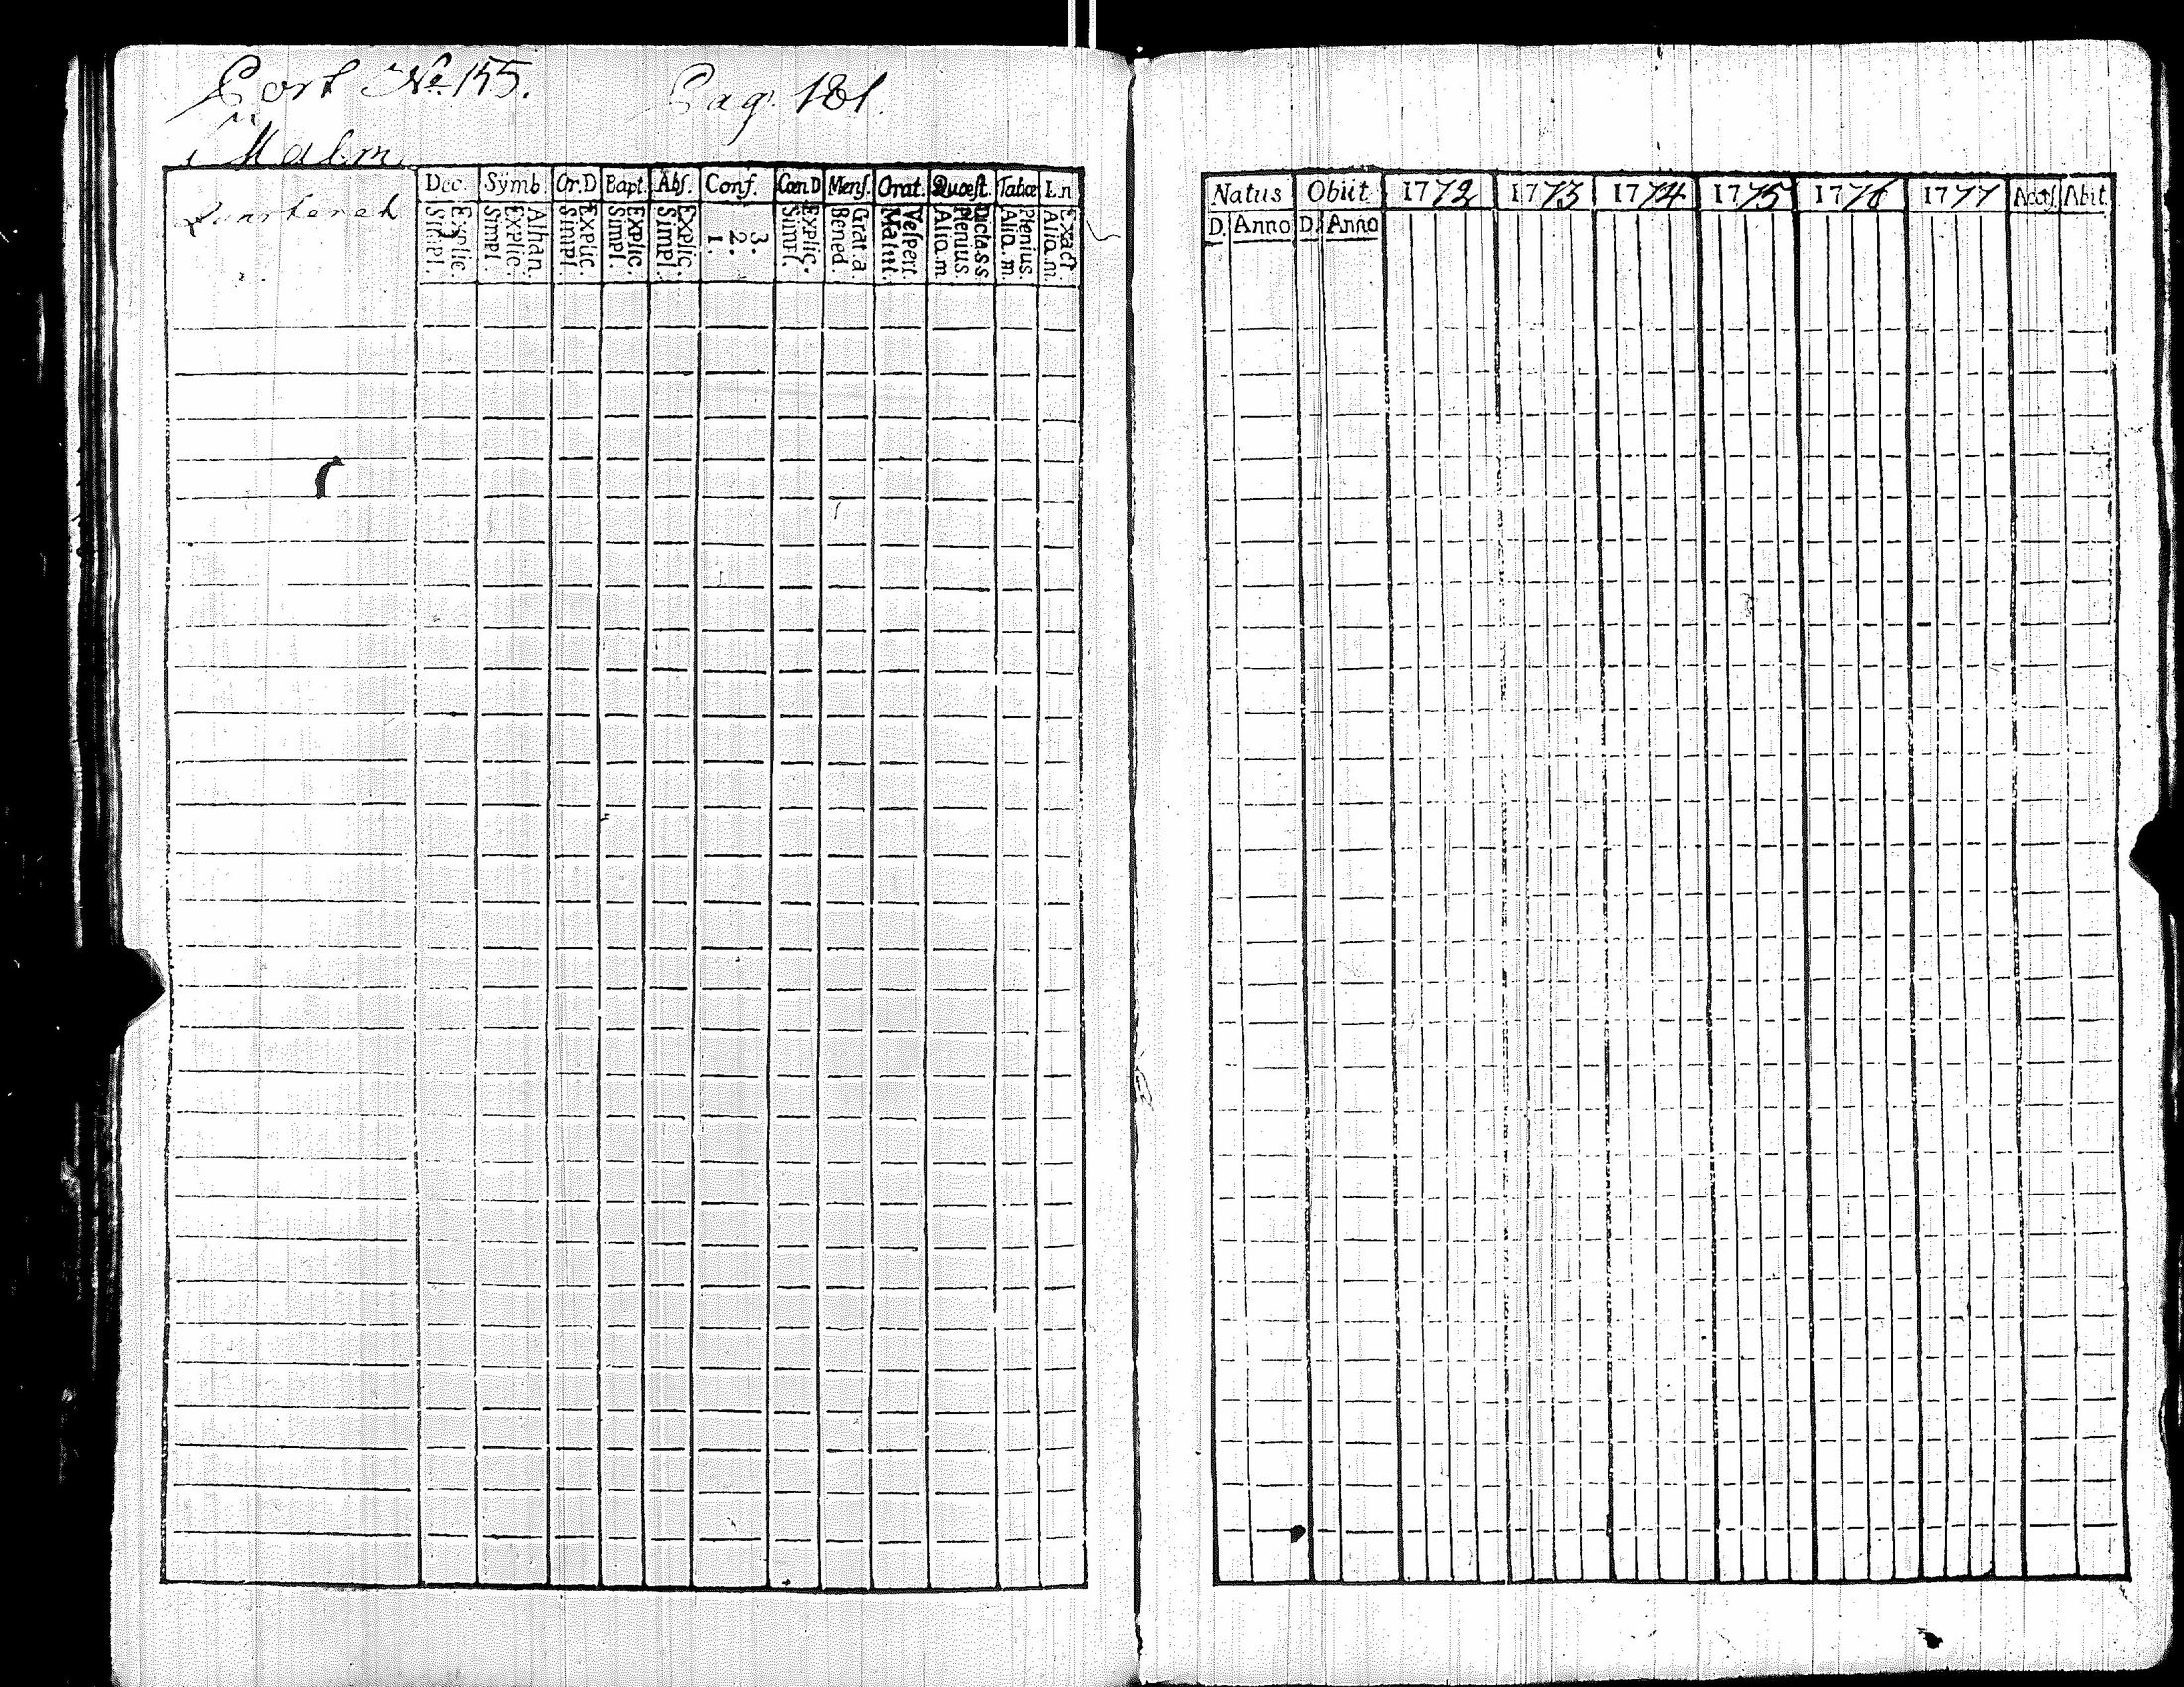 Cort No 155. Pag. 181.
i Malm
Quarteret
Dec. Symb. Or.D Bapt. Abs. Conf. Cœn.D Mens. Orat. Quœst. Tabœ I.n
Explic. Simpl.
Athan. Explic. Simpl.
Explic. Simpl.
Explic. Simpl.
Explic. Simpl.
3. 2. 1.
Explic. Simpl.
Grat.a Bened.
Vespert. Matut.
Dicta.s.s. Plenius. Aliq.m
Plenius. Aliq.m.
Exact Aliq.m.
Natus Obiit 1772 1773 1774 1775 1776 1777 Access. Abit
D. Anno D. Anno